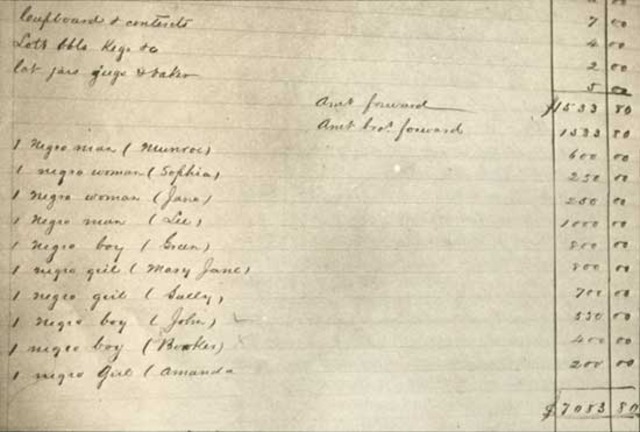 Cupboard & contents 7 00
Lots bbls Kegs &c 4 00
lot jars jugs & baker 2 00
5 00
Amt forward $1533 80
Amt brot forward 1533 80
1 Negro man (Munroe) 600 00
1 negro woman (Sophia) 250 00
1 negro woman (Jane) 250 00
1 Negro man (Lee) 1000 00
1 negro boy (Green) 800 00
1 negro girl (Mary Jane) 800 00
1 negro girl (Sally) 700 00
1 Negro boy (John) 550 00
1 negro boy (Booker) 400 00
1 negro Girl (Amanda 200 00
$7083 80